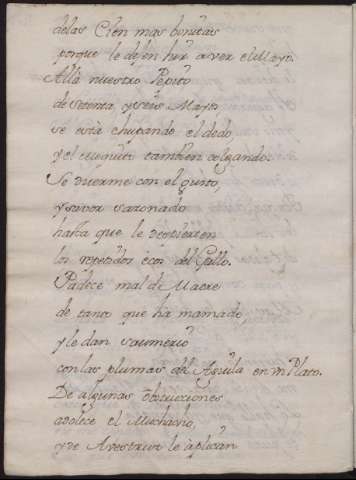 delas Cien mas bonitas
porque le dejen hir a ver el Mayo.
Allà nuestro Pepito
de setenta y seis Mayos
se està chupando el dedo,
y el chiquito tambien colgando.
Se duerme con el gusto,
y savor sazonado
hasta que le despierten
los repetidos ècos del Gallo.
Padece mal de Madre
de tanto que ha mamado,
y le dan saumerio
con las plumas del Aguila en un Plato.
De algunas òbstrucciones
adolece el Muchacho,
y de Avestruz le aplican